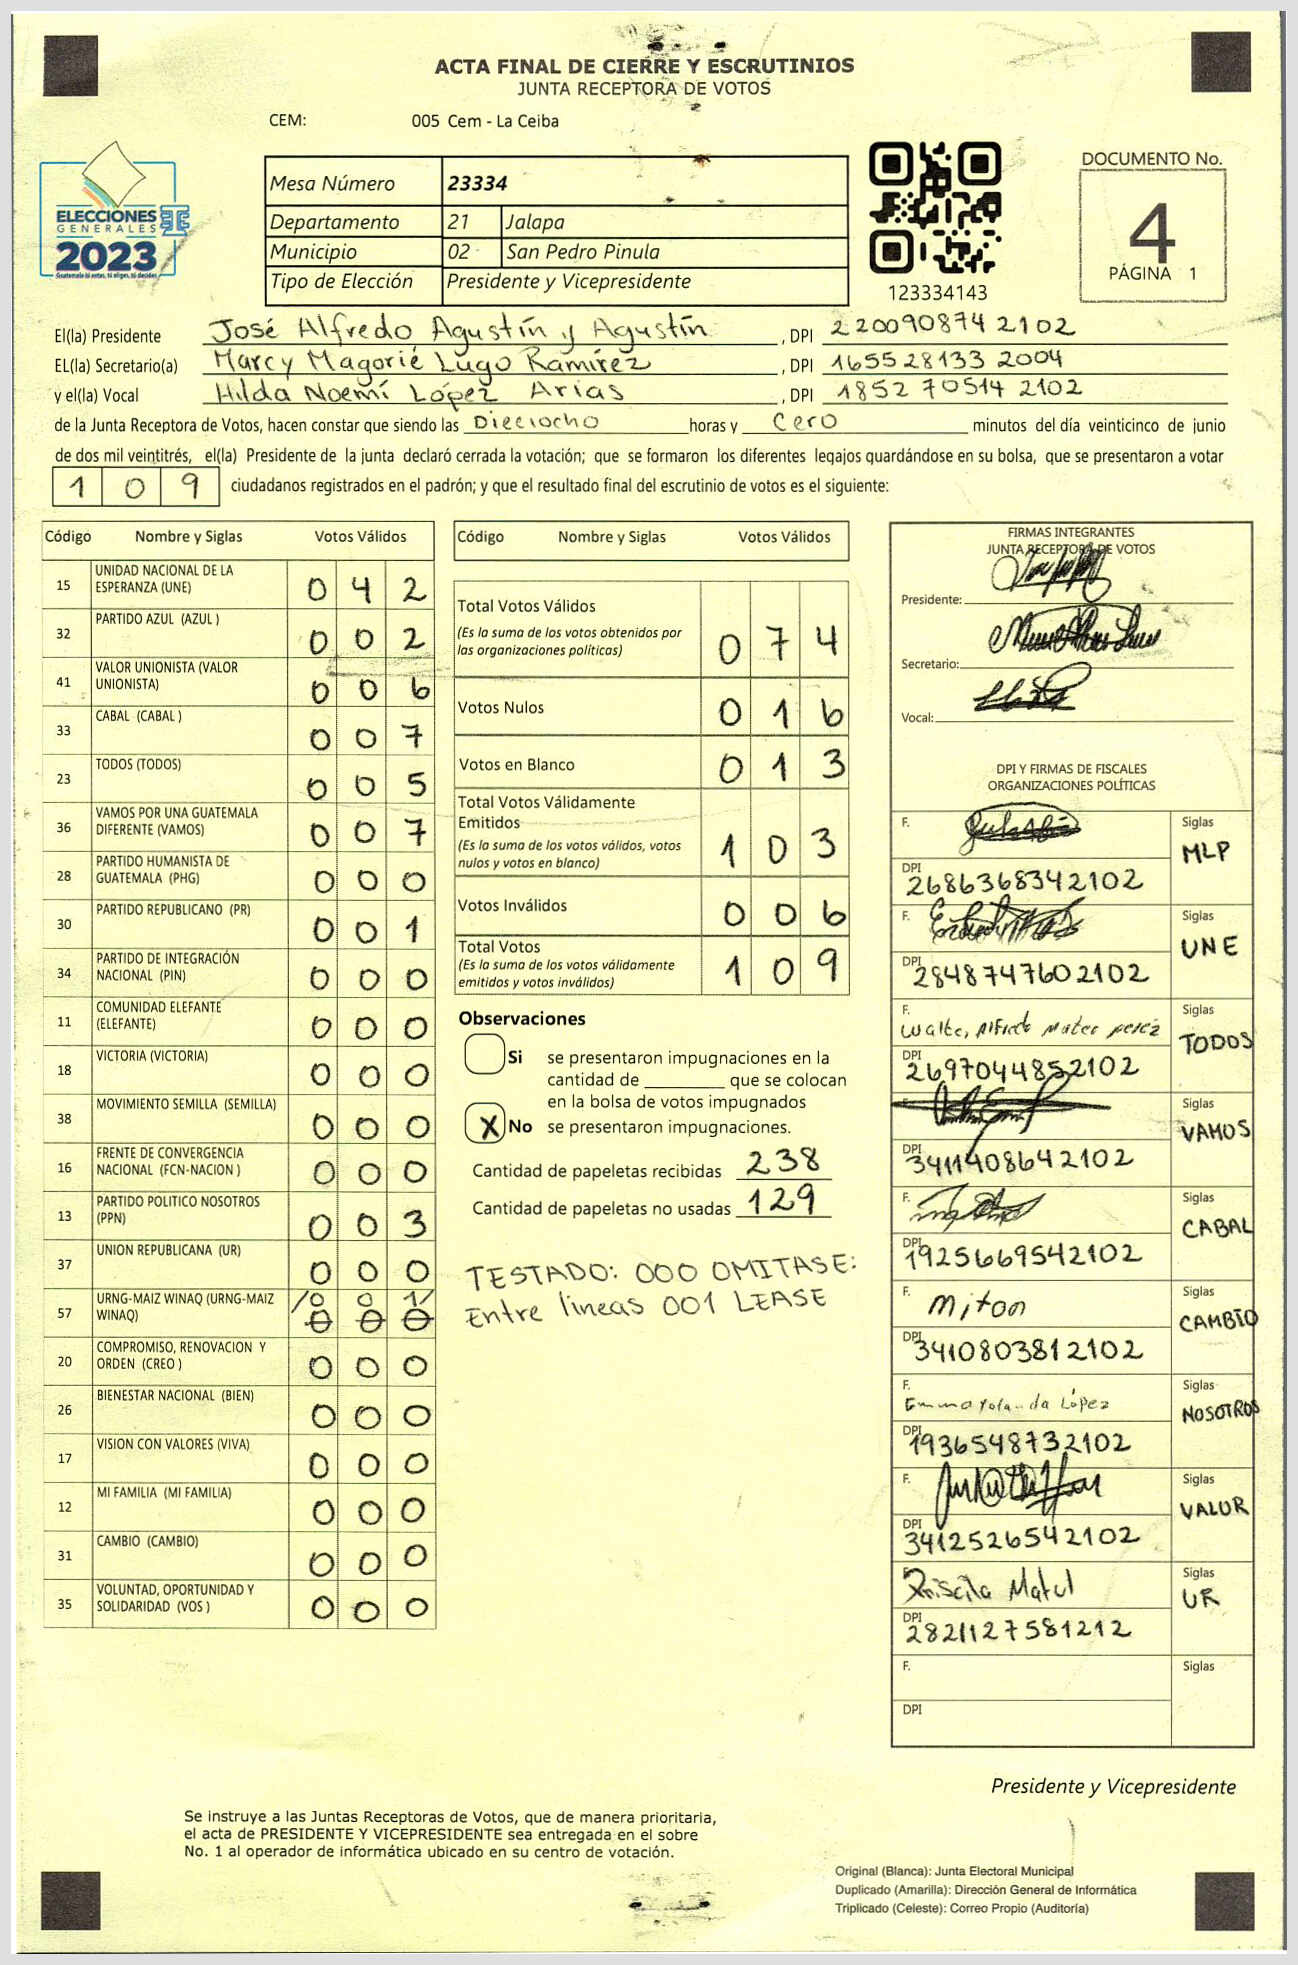 ACTA FINAL DE CIERRE Y ESCRUTINIOS
JUNTA RECEPTORA DE VOTOS
CEM: 005 Cem - La Ceiba
ELECCIONES
GENERALES
2023
Mesa Número 23334
Departamento 21 Jalapa
Municipio 02 San Pedro Pinula
Tipo de Elección Presidente y Vicepresidente
123334143
DOCUMENTO No.
4
PÁGINA 1
El(la) Presidente José Alfredo Agustín y Agustín , DPI 220090874 2102
EL(la) Secretario(a) Marcy Magorié Lugo Ramírez , DPI 165528133 2004
y el(la) Vocal Hilda Noemí López Arias , DPI 1852 70514 2102
de la Junta Receptora de Votos, hacen constar que siendo las Dieciocho horas y Cero minutos del día veinticinco de junio
de dos mil veintitrés, el(la) Presidente de la junta declaró cerrada la votación; que se formaron los diferentes legajos guardándose en su bolsa, que se presentaron a votar
1 0 9 ciudadanos registrados en el padrón; y que el resultado final del escrutinio de votos es el siguiente:
Código Nombre y Siglas Votos Válidos
15 UNIDAD NACIONAL DE LA ESPERANZA (UNE) 0 4 2
32 PARTIDO AZUL (AZUL ) 0 0 2
41 VALOR UNIONISTA (VALOR UNIONISTA) 0 0 6
33 CABAL (CABAL ) 0 0 7
23 TODOS (TODOS) 0 0 5
36 VAMOS POR UNA GUATEMALA DIFERENTE (VAMOS) 0 0 7
28 PARTIDO HUMANISTA DE GUATEMALA (PHG) 0 0 0
30 PARTIDO REPUBLICANO (PR) 0 0 1
34 PARTIDO DE INTEGRACIÓN NACIONAL (PIN) 0 0 0
11 COMUNIDAD ELEFANTE (ELEFANTE) 0 0 0
18 VICTORIA (VICTORIA) 0 0 0
38 MOVIMIENTO SEMILLA (SEMILLA) 0 0 0
16 FRENTE DE CONVERGENCIA NACIONAL (FCN-NACION ) 0 0 0
13 PARTIDO POLITICO NOSOTROS (PPN) 0 0 3
37 UNION REPUBLICANA (UR) 0 0 0
57 URNG-MAIZ WINAQ (URNG-MAIZ WINAQ) /0 0 1/ 0 0 0
20 COMPROMISO, RENOVACION Y ORDEN (CREO ) 0 0 0
26 BIENESTAR NACIONAL (BIEN) 0 0 0
17 VISION CON VALORES (VIVA) 0 0 0
12 MI FAMILIA (MI FAMILIA) 0 0 0
31 CAMBIO (CAMBIO) 0 0 0
35 VOLUNTAD, OPORTUNIDAD Y SOLIDARIDAD (VOS ) 0 0 0
Código Nombre y Siglas Votos Válidos
Total Votos Válidos 0 7 4
(Es la suma de los votos obtenidos por
las organizaciones políticas)
Votos Nulos 0 1 6
Votos en Blanco 0 1 3
Total Votos Válidamente
Emitidos 1 0 3
(Es la suma de los votos válidos, votos
nulos y votos en blanco)
Votos Inválidos 0 0 6
Total Votos 1 0 9
(Es la suma de los votos válidamente
emitidos y votos inválidos)
Observaciones
Si se presentaron impugnaciones en la
cantidad de ________ que se colocan
en la bolsa de votos impugnados
X No se presentaron impugnaciones.
Cantidad de papeletas recibidas 238
Cantidad de papeletas no usadas 129
TESTADO: 000 OMITASE:
Entre lineas 001 LEASE
FIRMAS INTEGRANTES
JUNTA RECEPTORA DE VOTOS
Presidente:
Secretario:
Vocal:
DPI Y FIRMAS DE FISCALES
ORGANIZACIONES POLÍTICAS
F. Siglas MLP
DPI 2686368342102
F. Siglas UNE
DPI 2848747602102
F. Walte, Alfredo Mateo perez Siglas TODOS
DPI 2697044852102
F. Siglas VAMOS
DPI 3411408642102
F. Siglas CABAL
DPI 1925669542102
F. Miton Siglas CAMBIO
DPI 3410803812102
F. Emma Yolanda López Siglas NOSOTROS
DPI 1936548732102
F. Siglas VALUR
DPI 3412526542102
F. Priscila Matul Siglas UR
DPI 2821127581212
F. Siglas
DPI
Presidente y Vicepresidente
Se instruye a las Juntas Receptoras de Votos, que de manera prioritaria,
el acta de PRESIDENTE Y VICEPRESIDENTE sea entregada en el sobre
No. 1 al operador de informática ubicado en su centro de votación.
Original (Blanca): Junta Electoral Municipal
Duplicado (Amarilla): Dirección General de Informática
Triplicado (Celeste): Correo Propio (Auditoría)